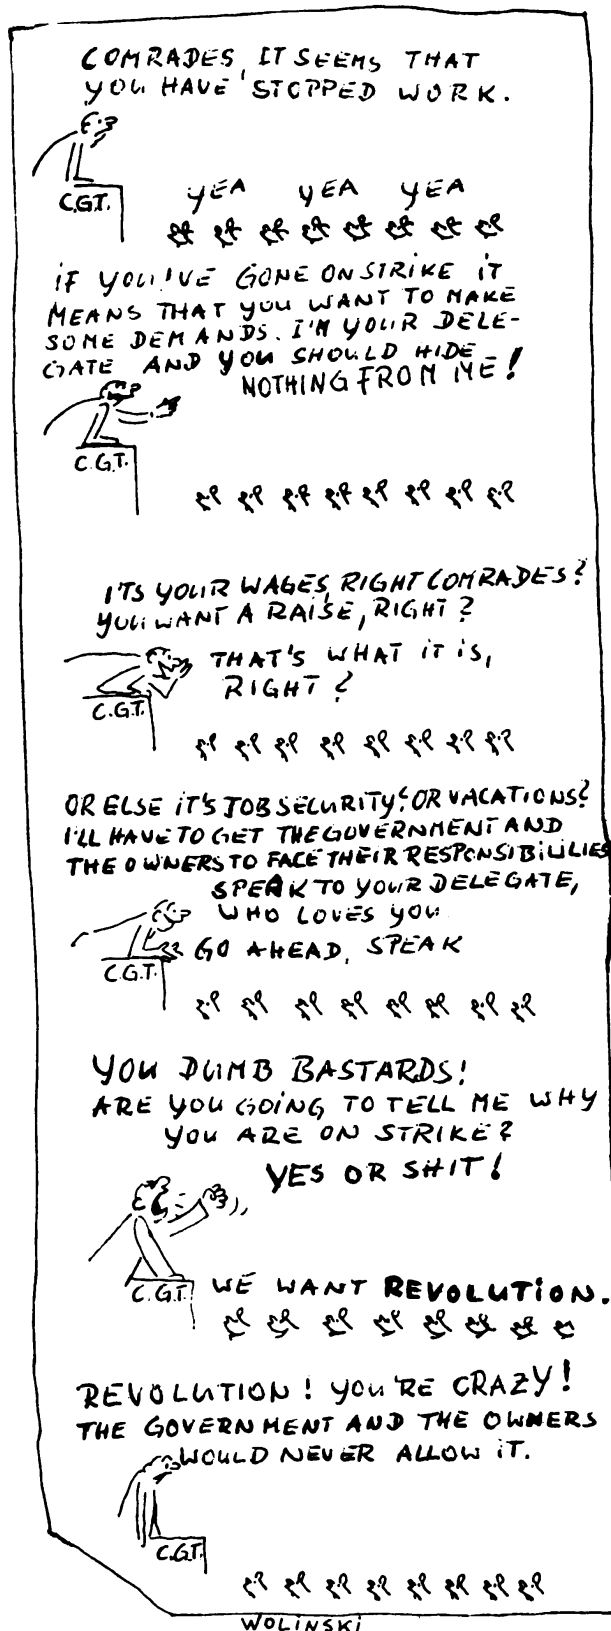 COMRADES, IT SEEMS THAT
YOU HAVE STOPPED WORK.
C.G.T.
YEA YEA YEA
IF YOU'VE GONE ON STRIKE IT
MEANS THAT YOU WANT TO MAKE
SOME DEMANDS. I'M YOUR DELE-
GATE AND YOU SHOULD HIDE
NOTHING FROM ME!
C.G.T.
ITS YOUR WAGES, RIGHT COMRADES?
YOU WANT A RAISE, RIGHT?
THAT'S WHAT IT IS,
RIGHT?
C.G.T.
OR ELSE IT'S JOB SECURITY? OR VACATIONS?
I'LL HAVE TO GET THE GOVERNMENT AND
THE OWNERS TO FACE THEIR RESPONSIBILILIES
SPEAK TO YOUR DELEGATE,
WHO LOVES YOU
GO AHEAD, SPEAK
C.G.T.
YOU DUMB BASTARDS!
ARE YOU GOING TO TELL ME WHY
YOU ARE ON STRIKE?
YES OR SHIT!
C.G.T.
WE WANT REVOLUTION.
REVOLUTION! YOU'RE CRAZY!
THE GOVERNMENT AND THE OWNERS
WOULD NEVER ALLOW IT.
C.G.T.
WOLINSKI